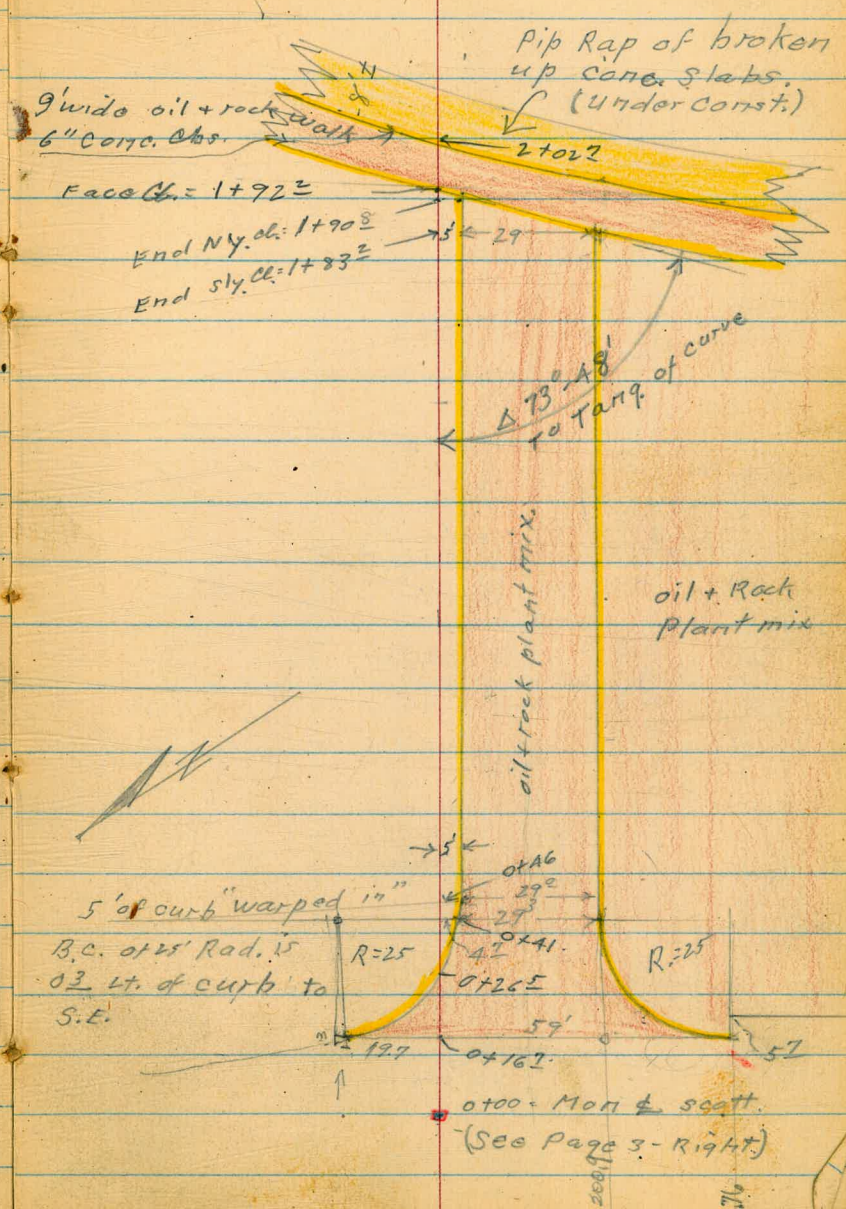 Rip Rap of broken
up conc. slabs.
(Under Const.)
9' wide oil + rock walk
6" Conc. Cbs.
2+02⁷
Face Cb. = 1+92²
End Nly. Cb. = 1+90⁸
End Sly. Cb. = 1+83²
5'
29
Δ 73°-48'
To Tang. of curve
oil + rock plant mix.
oil + Rock
Plant mix
5'
0+46
29⁰
5' of curb "warped in"
29⁰
0+41
B.C. of 25' Rad. is
0³ Lt. of curb to
S.E.
R=25
4⁷
0+26⁵
R=25
59'
19.7
0+16⁷
5⁷
0+00 = Mon ¢ Scott.
(See Page 3 - Right)